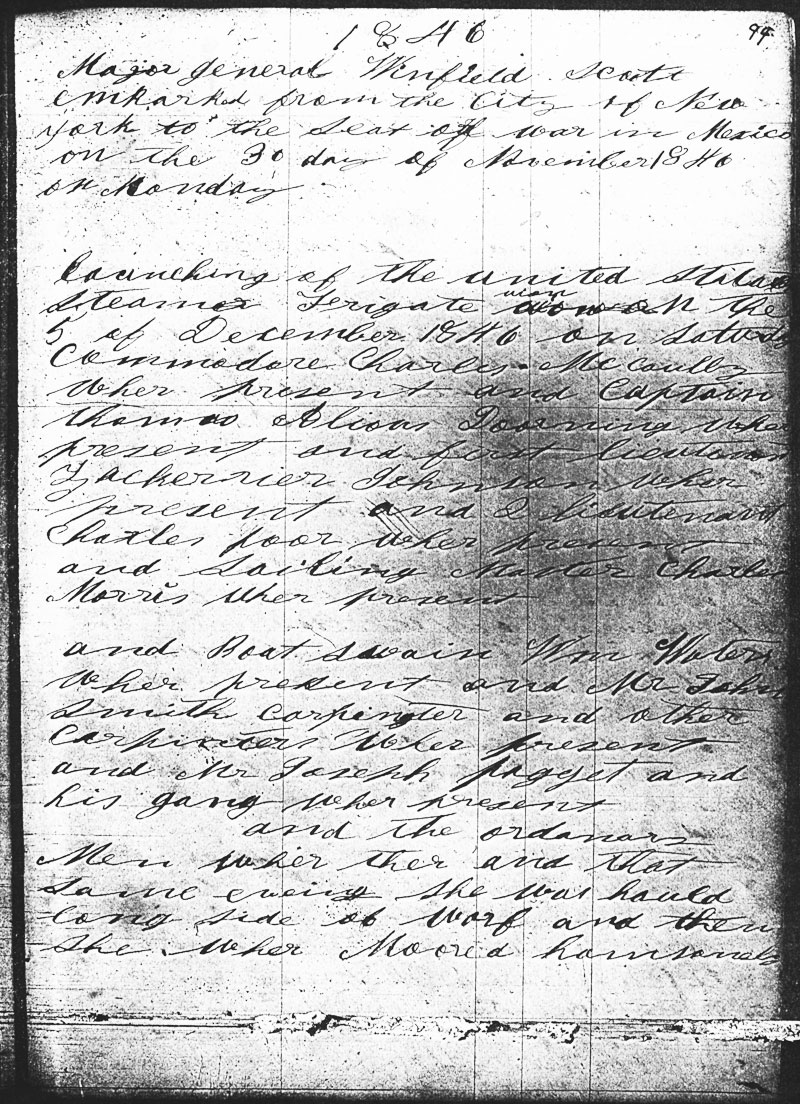 1846
94
Major general Winfield Scott
emkarked from the City of New
york to the Seat off war in Mexico
on the 30 day of November 1846
on Monday
launching of the united States
Steamer Frigate union on the
5 of December 1846 on Saturda
Commodore Charles McCaully
wher present and Captain
thomas Alivas Doorning wher
present and first lieutenant
Zackerrier Johnson wher
present and 2 lieutenant
Charles poor wher present
and Sailing Master Charles
Morris wher present
and Boat Swain Wm Waters
Wher present and Mr John
Smith Carpingter and other
Carpinters Wher present
and Mr Joseph paggget and
his gang wher present
and the ordanars
Men wher ther and that
Same eveing She was hauld
long Side of Worf and then
She wher Moored hamsomely